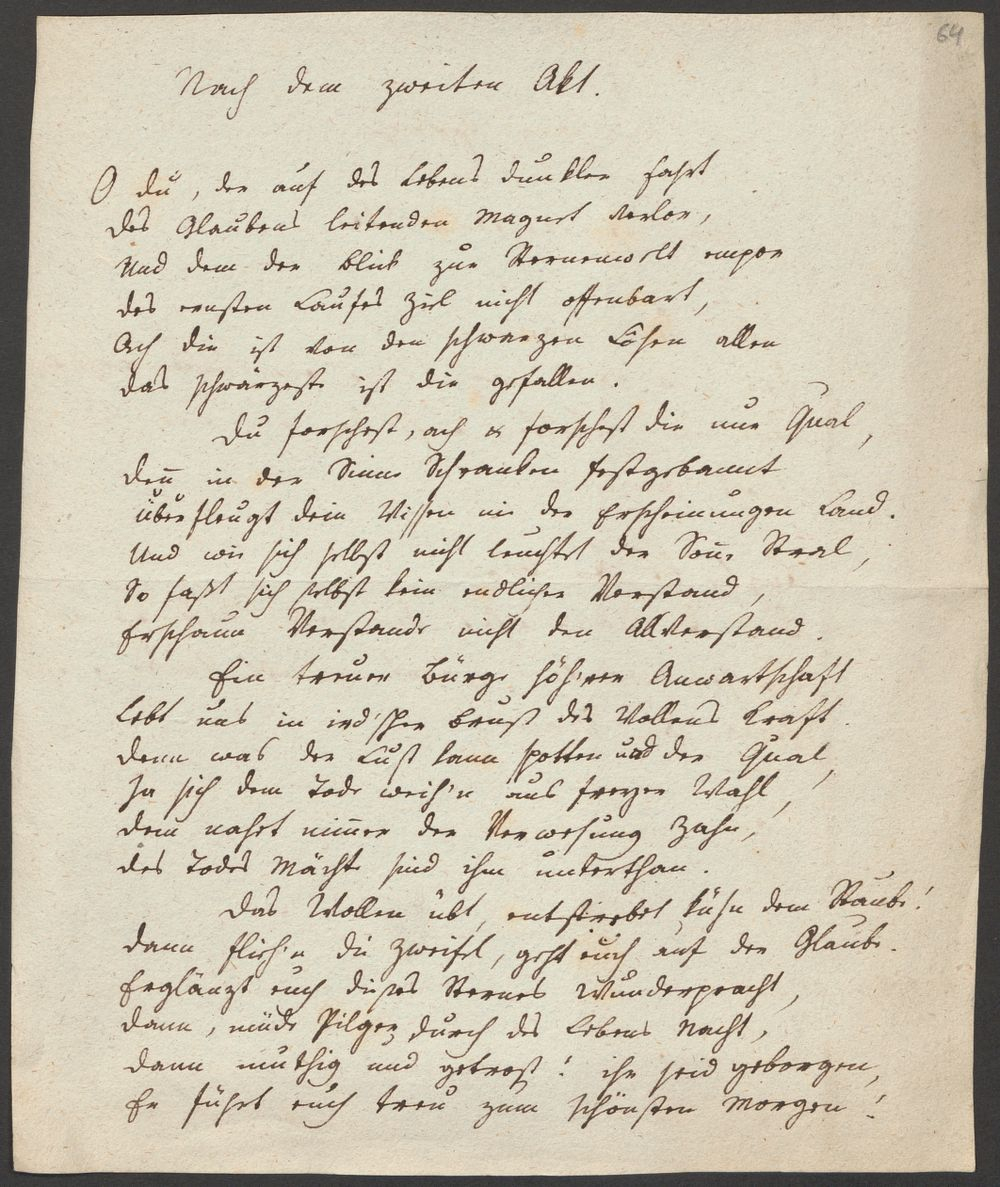 64
Nach dem zweiten Akt.
O du, der auf des Lebens dunkler Fahrt
des Glaubens leitenden Magnet verlor,
Und dem der Blick zur Sternenwelt empor
des ernsten Laufes Ziel nicht offenbart,
Ach dir ist von den schwarzen Losen allen
das schwärzeste ist dir gefallen.
Du forschest, ach & forschest dir nur Qual,
den̄ in der Sinne Schranken festgebannt
überfleugt dein Wissen nie der Erscheinungen Land.
Und wie sich selbst nicht leuchtet der Son̄e Stral,
So faßt sich selbst kein endlicher Verstand,
Erschaun Verstande nicht den Allverstand.
Ein treuer Bürge höh'rer Anwartschaft
Lebt uns in ird'scher Brust des Wollens Kraft.
denn was der Lust kann spotten und der Qual,
Ja sich dem Tode weih'n aus freyer Wahl,
dem nahet nim̄er der Verwesung Zahn,
des Todes Mächte sind ihm unterthan.
Das Wollen übt, entstrebet kühn dem Staube!
dann flieh'n die Zweifel, geht euch auf der Glaube.
Erglänzt euch dieses Sternes Wunderpracht,
dann, müde Pilger durch des Lebens Nacht,
dann muthig und getrost! ihr seid geborgen,
Er führt euch treu zum schönsten Morgen!